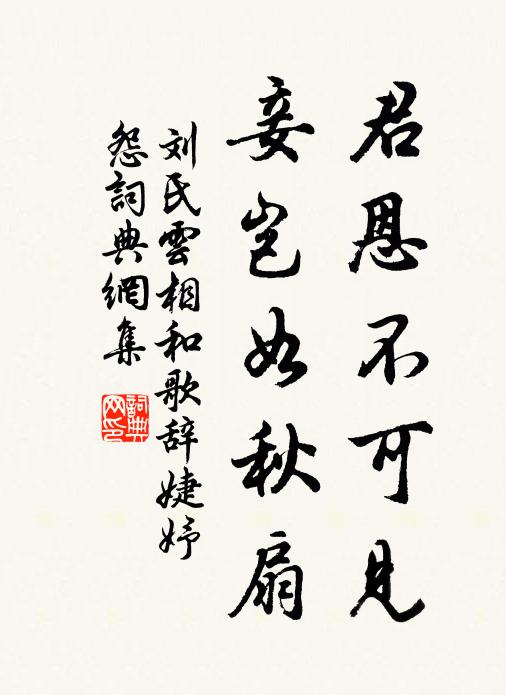 君恩不可见
妾岂如秋扇
刘氏雲相和歌辞婕妤
怨詞典網集
詞典
网印